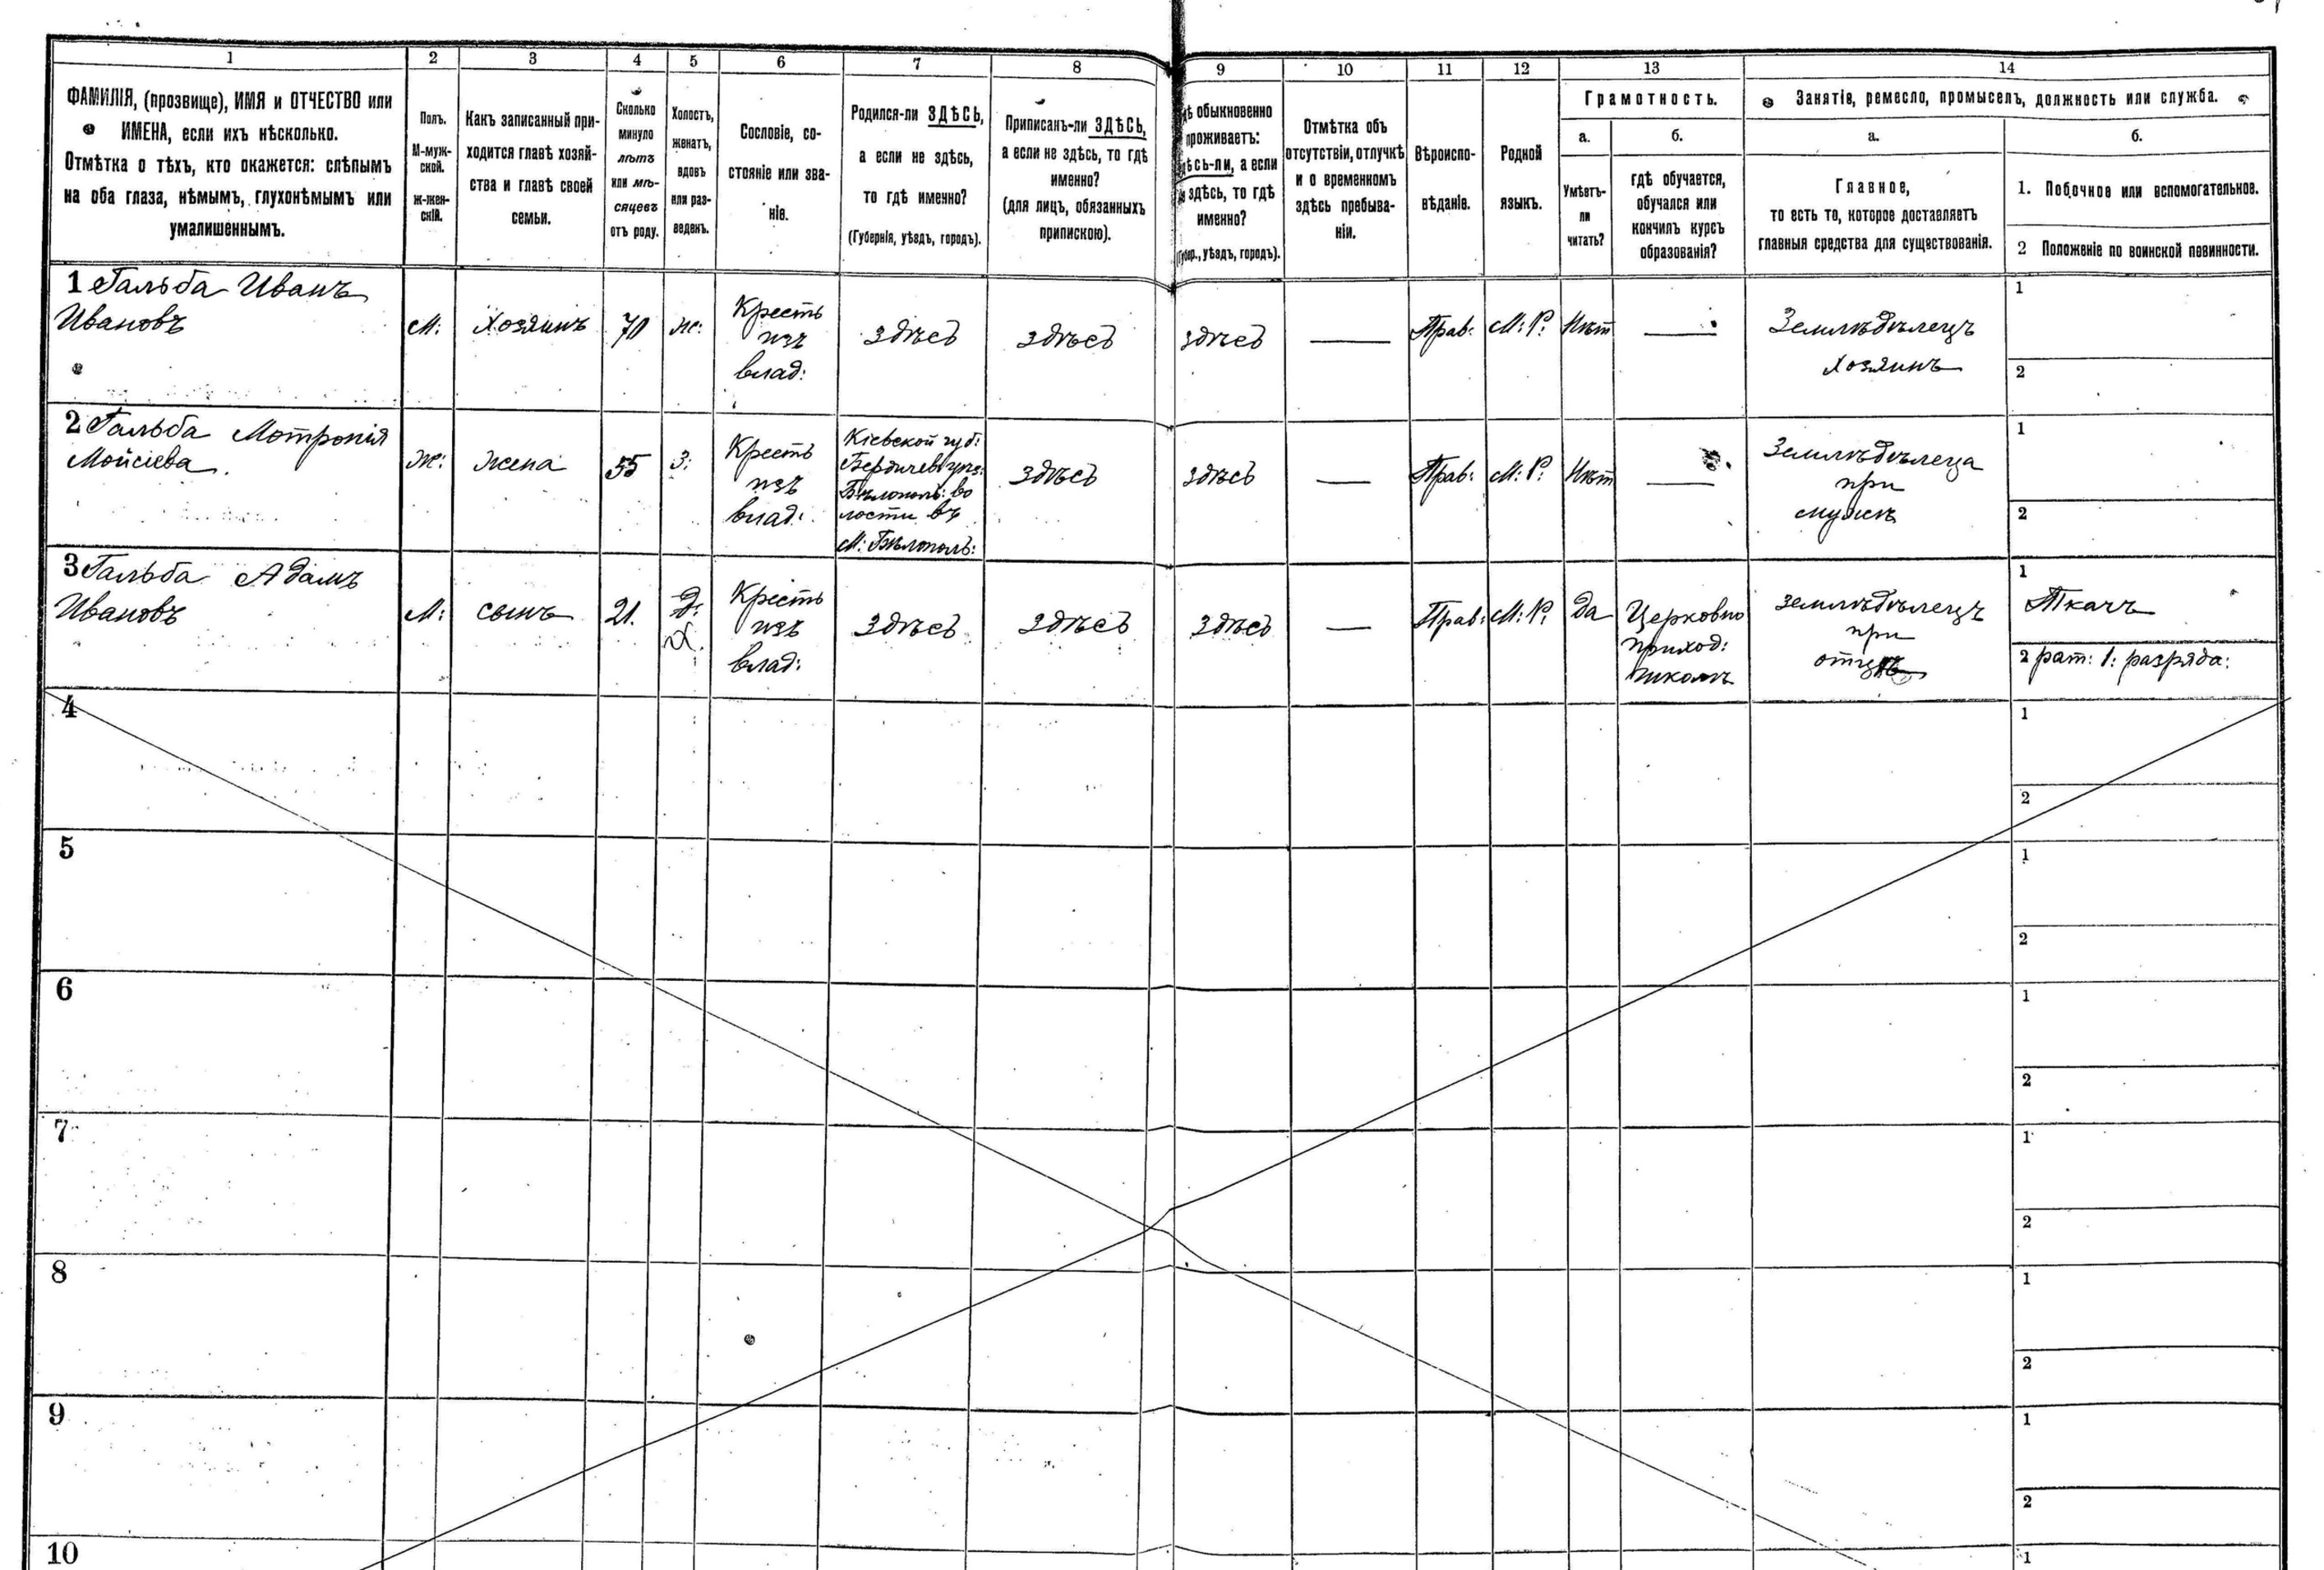 1 2 3 4 5 6 7 8 9 10 11 12 13 14
ФАМИЛІЯ, (прозвище), ИМЯ и ОТЧЕСТВО или
ИМЕНА, если ихъ нѣсколько.
Отмѣтка о тѣхъ, кто окажется: слѣпымъ
на оба глаза, нѣмымъ, глухонѣмымъ или
умалишеннымъ.
Полъ.
М-муж-
ской.
ж-жен-
скій.
Какъ записанный при-
ходится главѣ хозяй-
ства и главѣ своей
семьи.
Сколько
минуло
лѣтъ
или мѣ-
сяцевъ
отъ роду.
Холостъ,
женатъ,
вдовъ
или раз-
веденъ.
Сословіе, со-
стояніе или зва-
ніе.
Родился-ли ЗДѢСЬ,
а если не здѣсь,
то гдѣ именно?
(Губернія, уѣздъ, городъ).
Приписанъ-ли ЗДѢСЬ,
а если не здѣсь, то гдѣ
именно?
(для лицъ, обязанныхъ
припискою).
дѣ обыкновенно
проживаетъ:
дѣсь-ли, а если
здѣсь, то гдѣ
именно?
(Губер., уѣздъ, городъ).
Отмѣтка объ
отсутствіи, отлучкѣ
и о временномъ
здѣсь пребыва-
ніи.
Вѣроиспо-
вѣданіе.
Родной
языкъ.
Грамотность.
а.
Умѣетъ-
ли
читать?
б.
гдѣ обучается,
обучался или
кончилъ курсъ
образованія?
Занятіе, ремесло, промыселъ, должность или служба.
а.
Главное,
то есть то, которое доставляетъ
главныя средства для существованія.
б.
1. Побочное или вспомогательное.
2 Положеніе по воинской повинности.
1 Гальба Иванъ
Ивановъ
М:
Хозяинъ
70
ж:
Кресть
изъ
влад:
здѣсь
здѣсь
здѣсь
—
Прав:
М: Р:
Нѣт
—
Землѣдѣлецъ
хозяинъ
1
2
2 Гальба Мотронія
Мойсіева
ж:
жена
55
з:
Кресть
изъ
влад:
Кіевской губ:
Бердичев: уѣз:
Бѣлополь: во
лости въ
М: Бѣлополь:
здѣсь
здѣсь
—
Прав:
М: Р:
Нѣт
—
Землѣдѣлеца
при
мужѣ
1
2
3 Гальба Адамъ
Ивановъ
М:
сынъ
21.
Х.
Кресть
изъ
влад:
здѣсь
здѣсь
здѣсь
—
Прав:
М: Р:
да
Церковно
приход:
школѣ
землѣдѣлецъ
при
отцѣ
1 Ткачъ
2 рат: 1: разряда:
4
1
2
5
1
2
6
1
2
7
1
2
8
1
2
9
1
2
10
1